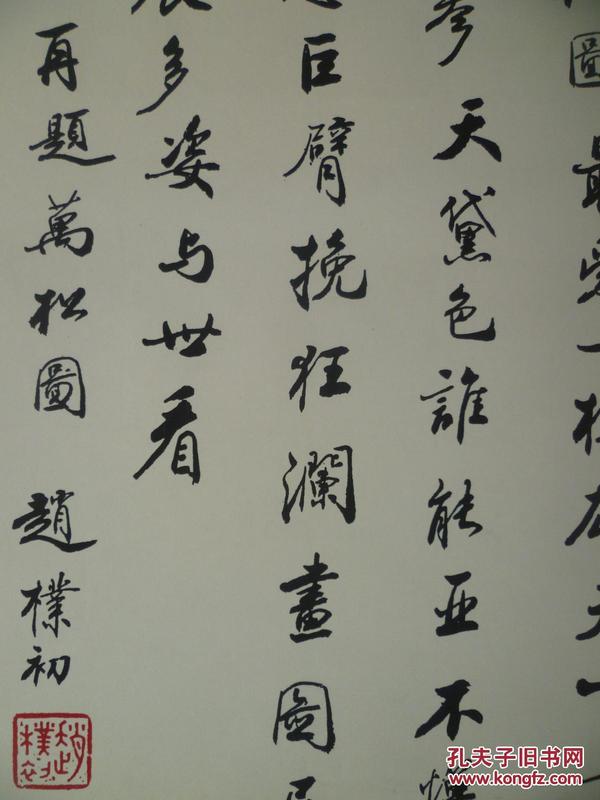 圖最愛一
天黛色誰能亞不
巨臂挽狂瀾畫圖
多姿与世看
再題萬松圖 趙樸初
趙樸初
孔夫子旧书网
www.kongfz.com